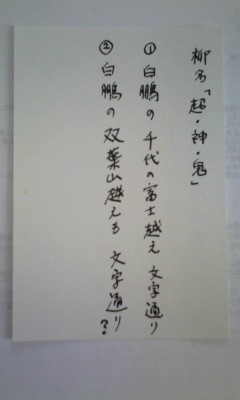 柳名「超・神・鬼」
①白鵬の千代の富士越え文字通り
②白鵬の双葉山越えも文字通り?